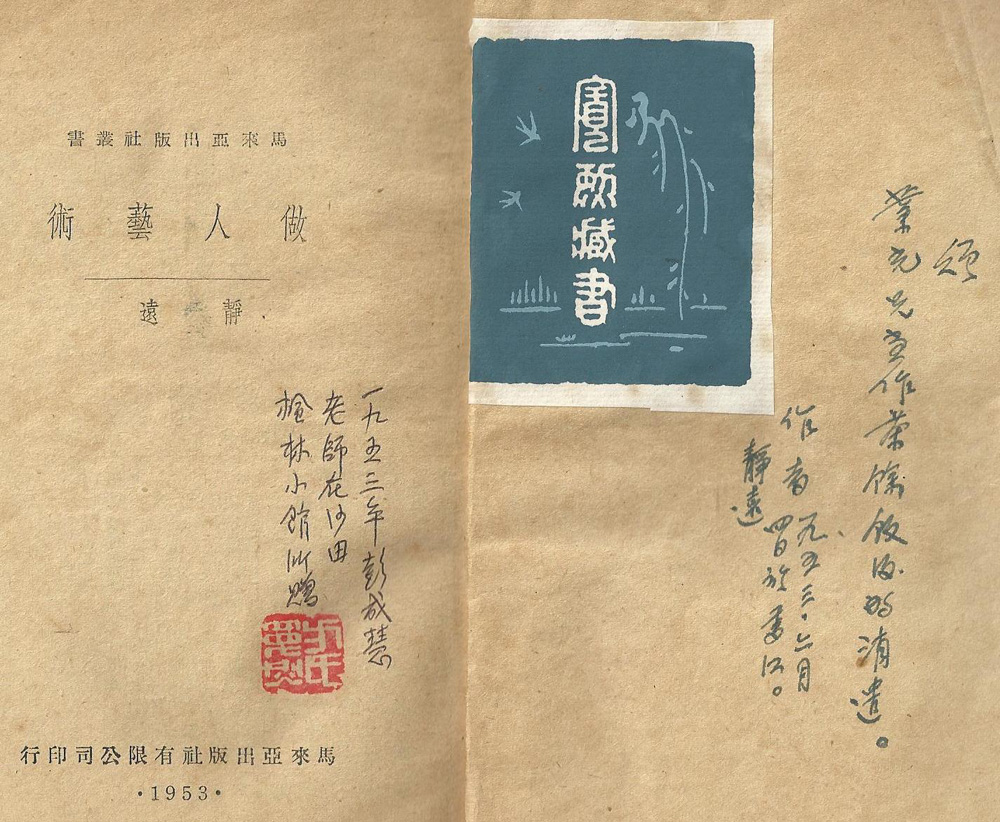 馬來亞出版社叢書
做人藝術
靜遠
一九五三年彭成慧
老師在沙田
楓林小館所贈
方氏
寬烈
馬來亞出版社有限公司印行
·1953·
寬烈藏書
業先生作茶餘飯後的消遣。
作者
靜遠
一九五三·六月
四日於香江。